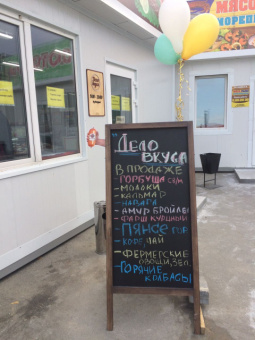 МЯСО
МОРЕПР
"Дело
вкуса"
В ПРОДАЖЕ
- ГОРБУША С/М
- МОЛОКИ
- КАЛЬМАР
- НАВАГА
- АМУР БРОЙЛЕР
- ФАРШ КУРИНЫЙ
- ПЯНСЕ ГОР
- КОФЕ, ЧАЙ
- ФЕРМЕРСКИЕ
ОВОЩИ, ЗЕЛ.
- ГОРЯЧИЕ
КОЛБАСЫ